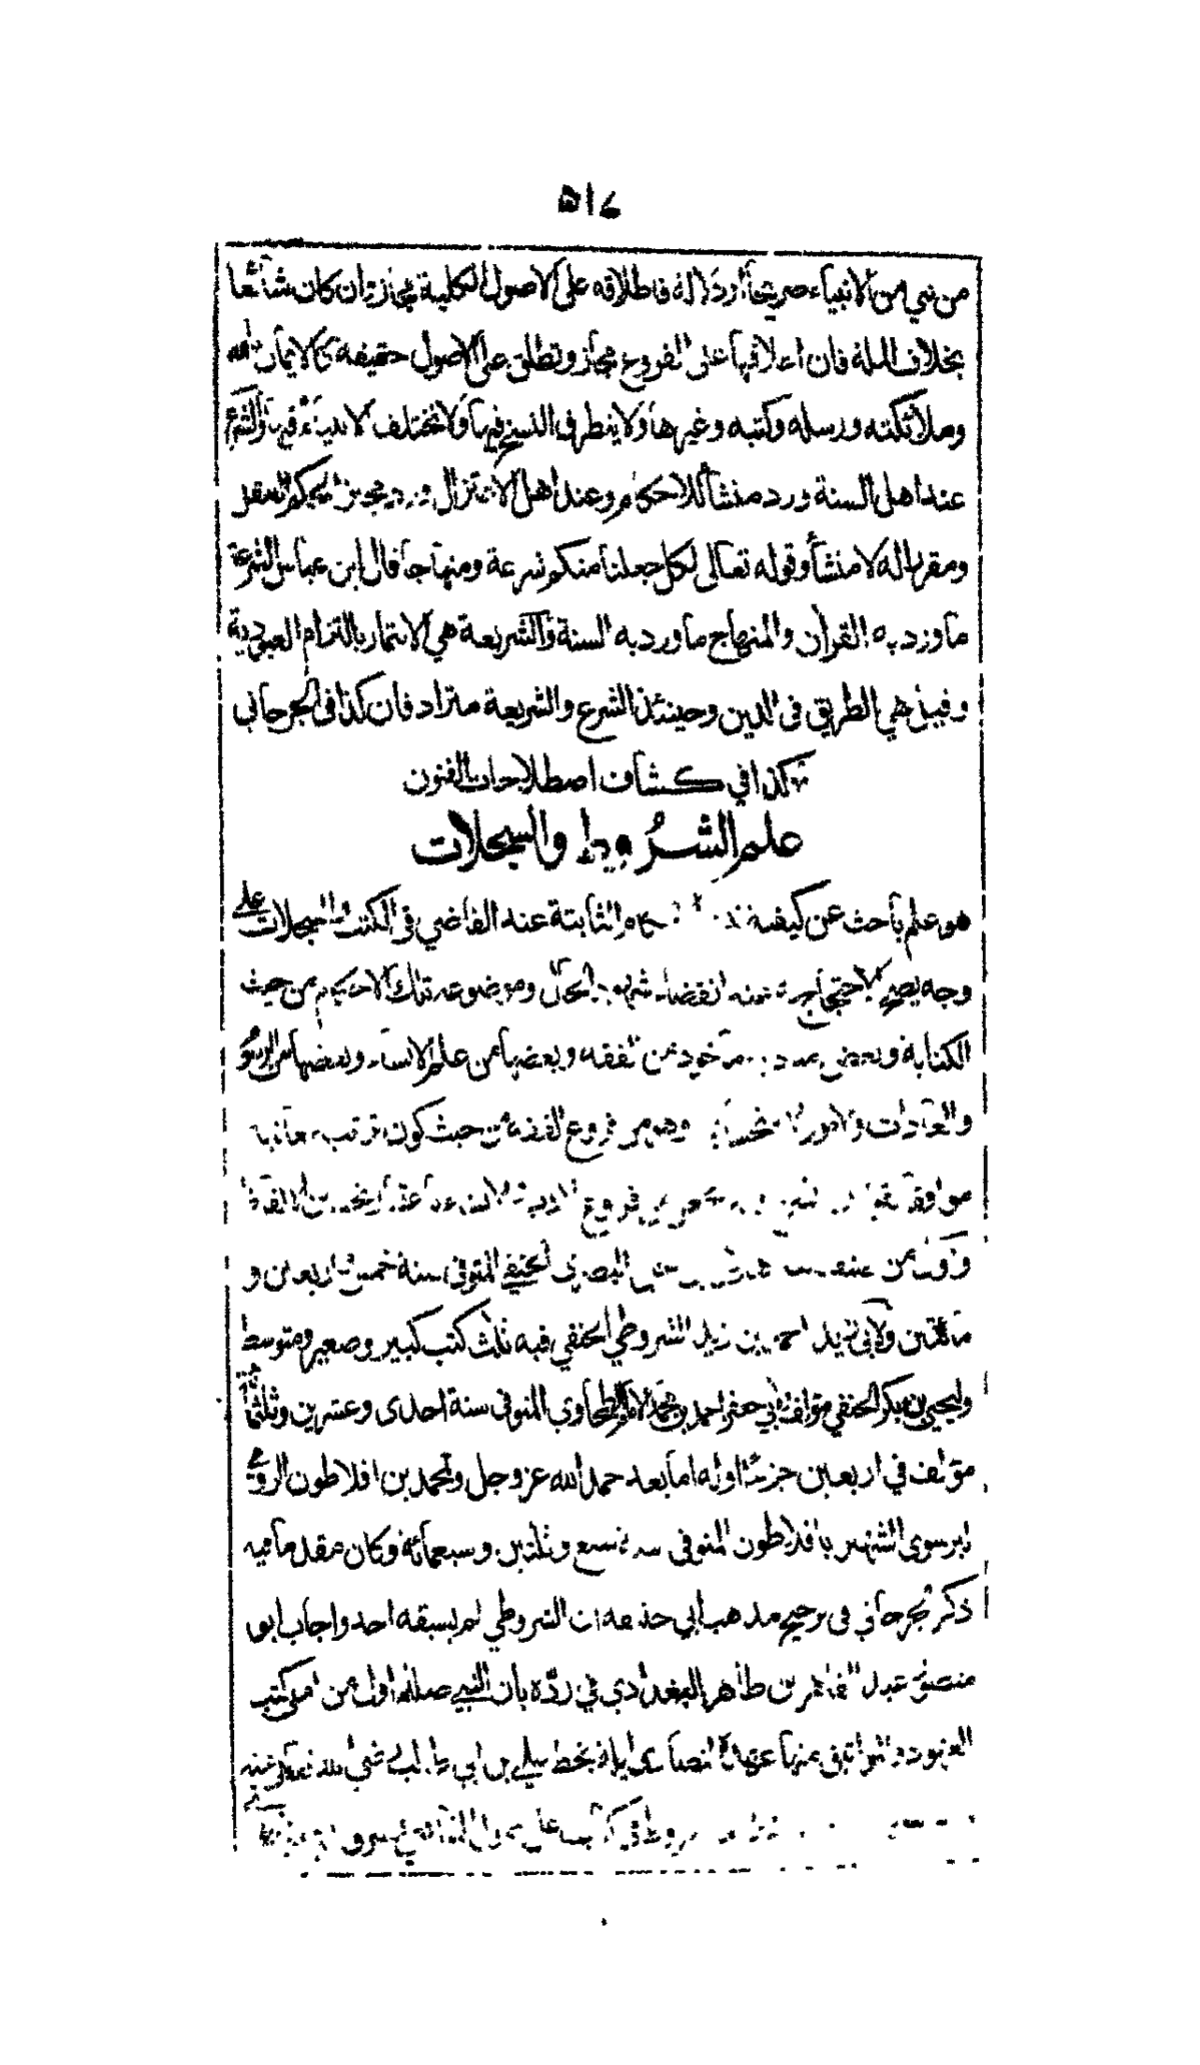 ٥١٤
من نبي من الانبياء صريحا او دلالة فاطلاقه على الاصول الكلية مجاز وان كان شائعا
بخلاف الملة فان اطلاقها على الفروع مجاز وتطلق على الاصول حقيقة كالايمان بالله
وملائكته ورسله وكتبه وغيرها ولا يتطرق النسخ فيها ولا تختلف الانبياء فيها والشرع
عند اهل السنة ورد منشأ للاحكام وعند اهل الاعتزال ورد مجيزا لحكم العقل
ومقررا له لا منشأ وقوله تعالى لكل جعلنا منكم شرعة ومنهاجا قال ابن عباس الشرعة
ما ورد به القرآن والمنهاج ما ورد به السنة والشريعة هي الائتمار بالتزام العبودية
وقيل هي الطريق في الدين وحينئذ الشرع والشريعة مترادفان كذا في الجرجاني
كذا في كشاف اصطلاحات الفنون
علم الشروط والسجلات
هو علم باحث عن كيفية الاحكام الثابتة عند القاضي في الكتب والسجلات على
وجه يصح الاحتجاج به عند انقضاء شهود الحال وموضوعه تلك الاحكام من حيث
الكتابة وبعض مأخوذ من الفقه وبعضها من علم الانشاء وبعضها من الرسوم
والعادات والامور الاستحسانية وهو من فروع الفقه من حيث كون ترتيب معانيه
موافقا من فروع الادب
واول من هلال بن يحيى البصري الحنفي المتوفى سنة خمس واربعين و
مائتين ولابي زيد احمد بن زيد الشروطي الحنفي فيه ثلث كتب كبير وصغير ومتوسط
وليحيى بن بكر الحنفي مؤلف ابي جعفر احمد بن محمد الامام الطحاوي المتوفى سنة احدى وعشرين وثلثمائة
مؤلف في اربعين جزءا اوله اما بعد حمد الله عز وجل ولمحمد بن افلاطون الرومي
البرسوي الشهير بافلاطون المتوفى سنة سبع وثلثين وسبعمائة وكان مقدما فيه
ذكر الجرجاني في ترجيح مذهب ابي حنيفة ان الشروطي لم يسبقه احد واجاب ابو
منصور عبد القاهر بن طاهر البغدادي في رده بان النبي صللم اول من املى كتب
العهود والمواثيق منها عهد النصارى ايلة بخط علي بن ابي طالب رضي الله تعالى عنه